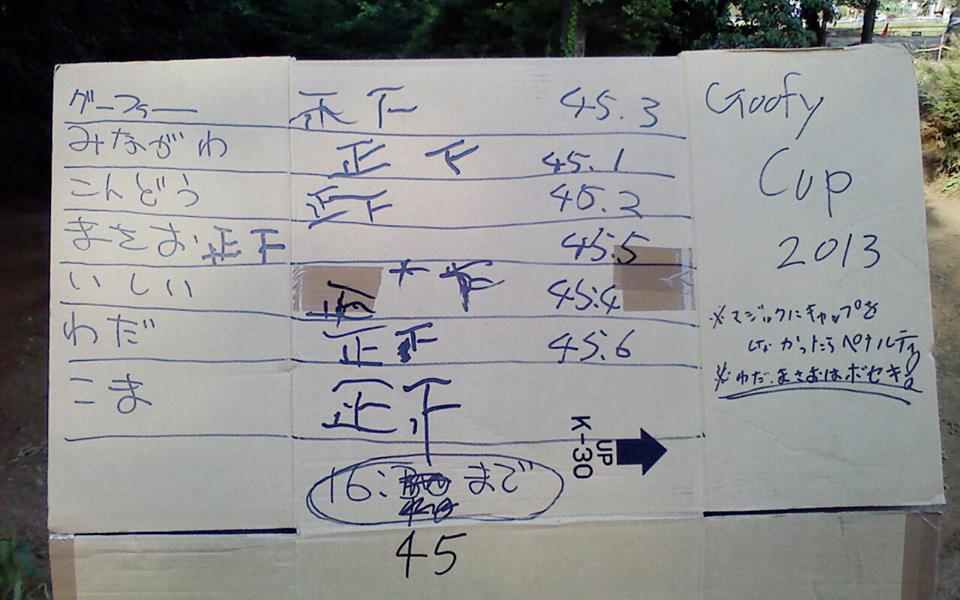 グーフィー 正下 45.3
みながわ 正下 45.1
こんどう 正下 45.2
まさお 正下 45.5
いしい 正 下 45.4
わだ 正下 45.6
こま 正下
16: まで
45
K-30 UP
Goofy
Cup
2013
※マジックにキャップを
しなかったらペナルティ
※わだ、まさおは